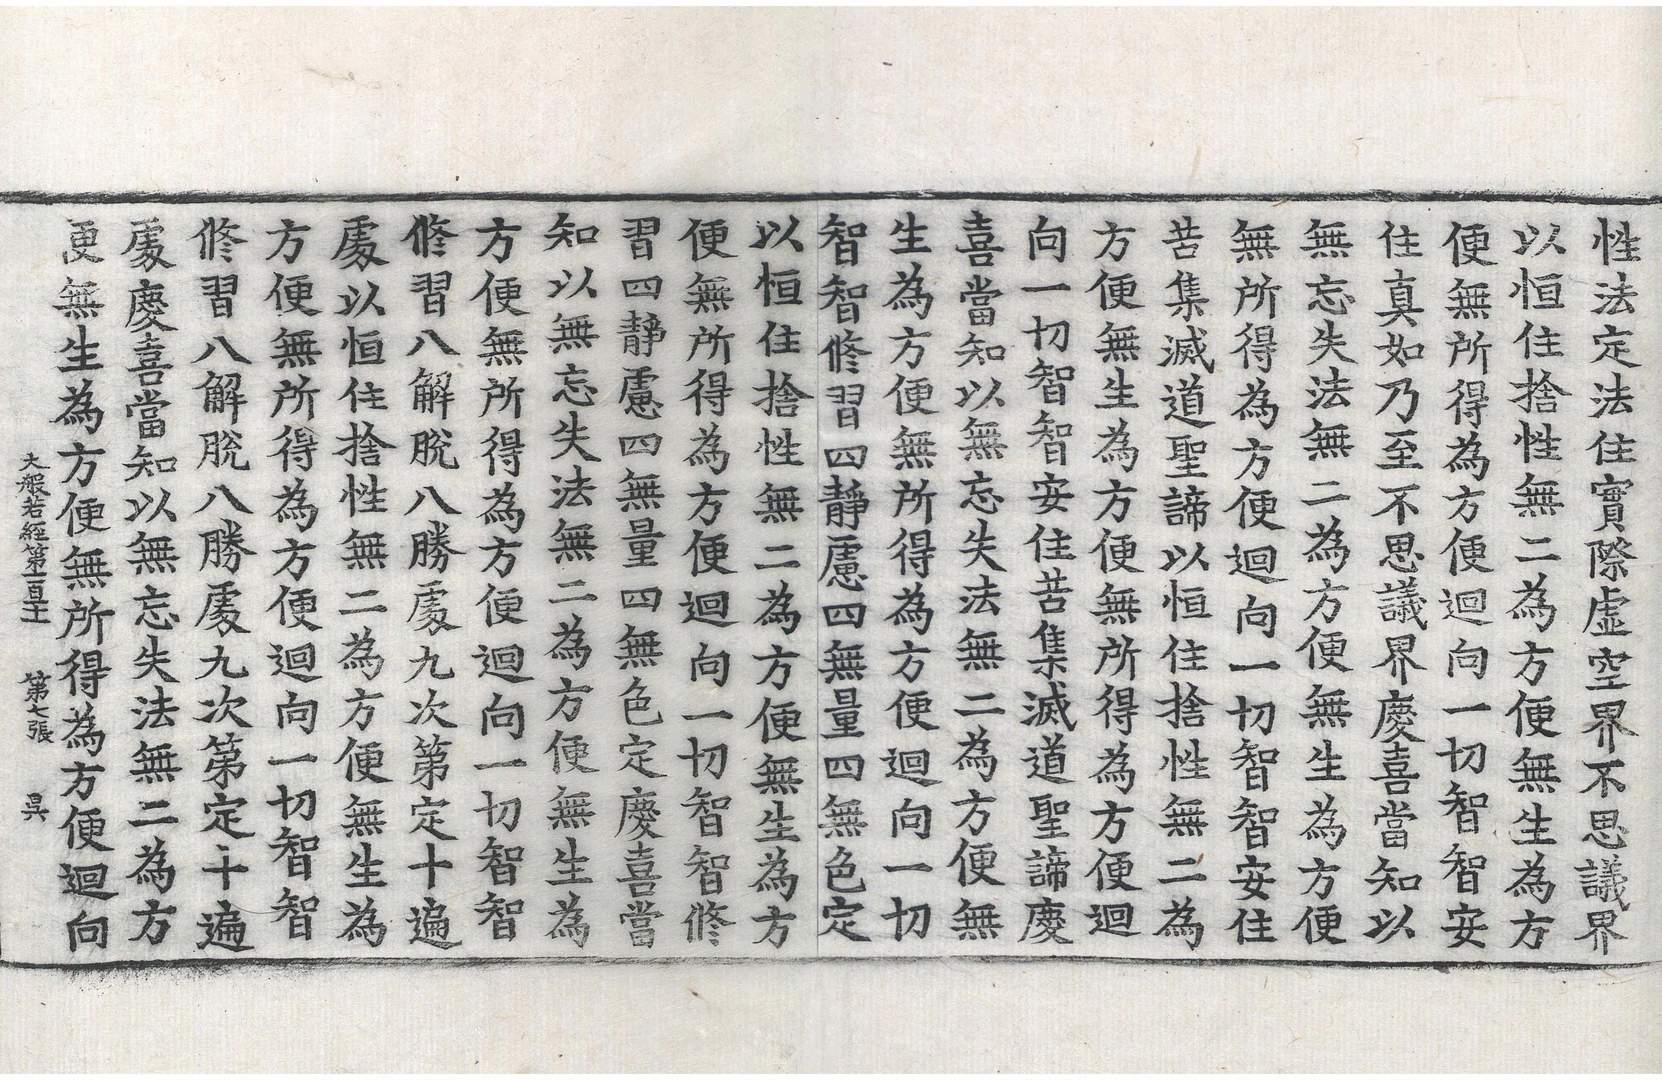 性法定法住實際虛空界不思議界
以恒住捨性無二為方便無生為方
便無所得為方便迴向一切智智安
住真如乃至不思議界慶喜當知以
無忘失法無二為方便無生為方便
無所得為方便迴向一切智智安住
苦集滅道聖諦以恒住捨性無二為
方便無生為方便無所得為方便迴
向一切智智安住苦集滅道聖諦慶
喜當知以無忘失法無二為方便無
生為方便無所得為方便迴向一切
智智修習四靜慮四無量四無色定
以恒住捨性無二為方便無生為方
便無所得為方便迴向一切智智修
習四靜慮四無量四無色定慶喜當
知以無忘失法無二為方便無生為
方便無所得為方便迴向一切智智
修習八解脫八勝處九次第定十遍
處以恒住捨性無二為方便無生為
方便無所得為方便迴向一切智智
修習八解脫八勝處九次第定十遍
處慶喜當知以無忘失法無二為方
便無生為方便無所得為方便迴向
大般若經第一百十一 第七張 昃